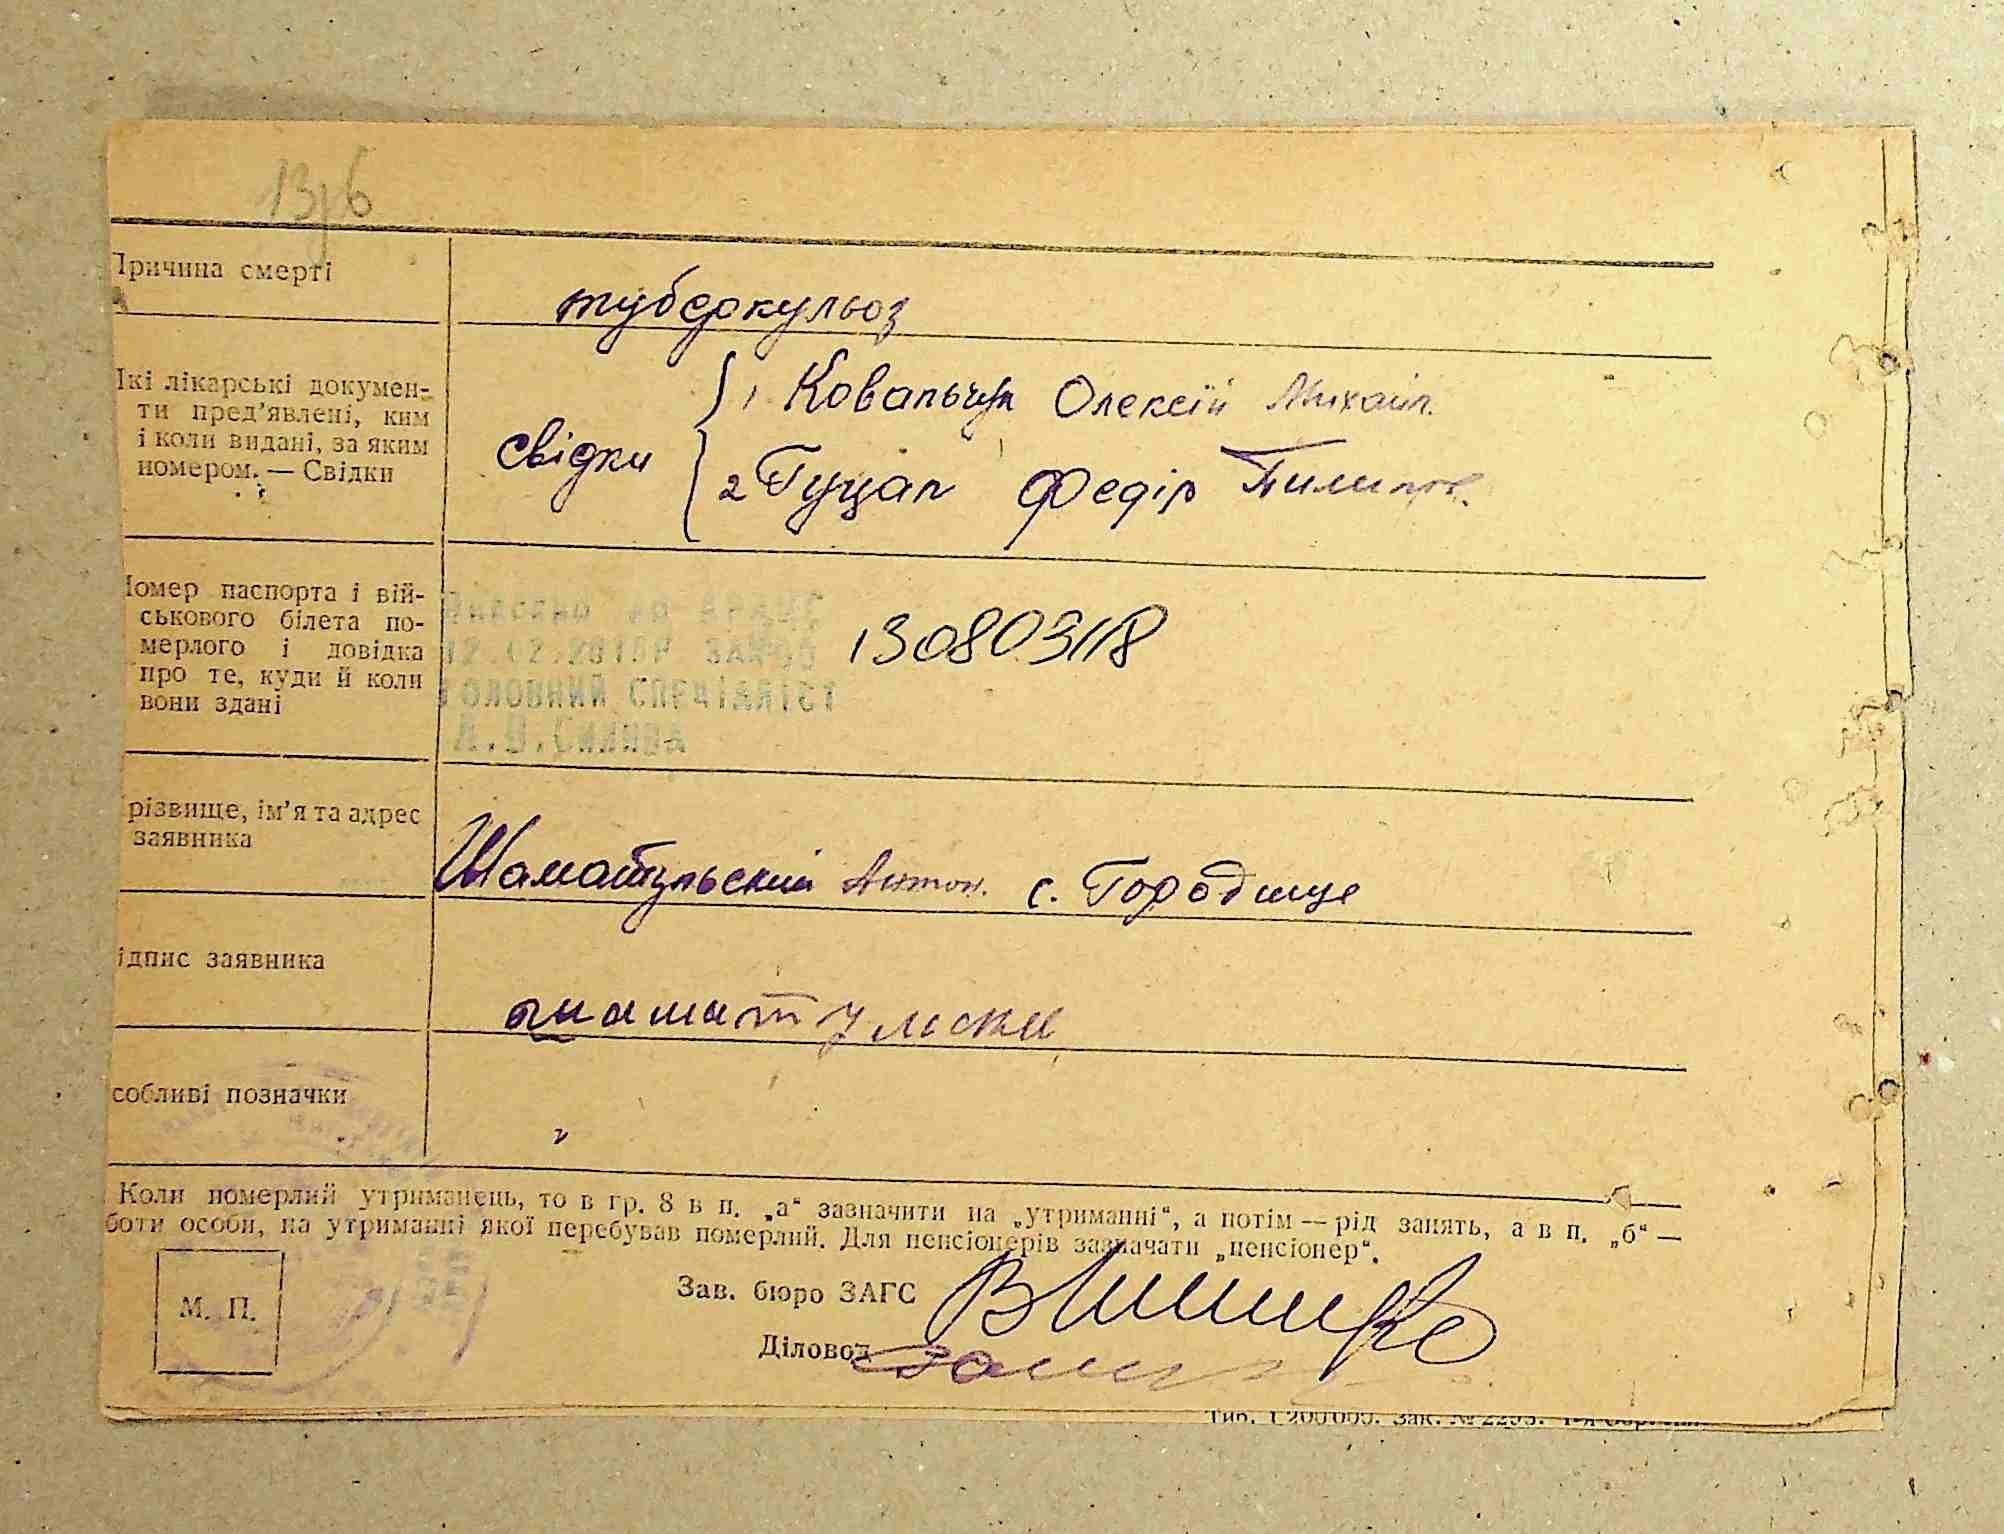 13/6
Причина смерті
туберкульоз
Які лікарські докумен-
ти пред'явлені, ким
і коли видані, за яким
номером. — Свідки
свідки
1 Ковальчук Олексій Михайл.
2 Гуцал Федір Пилипов.
Номер паспорта і вій-
ськового білета по-
мерлого і довідка
про те, куди й коли
вони здані
12.02.2018р
ГОЛОВНИЙ СПЕЦІАЛІСТ
130803118
різвище, ім'я та адрес
заявника
Шаматульський Антон. с. Городище
ідпис заявника
шаматульски
собливі позначки
Коли померлий утриманець, то в гр. 8 в п. „а“ зазначити на „утриманні“, а потім — рід занять, а в п. „б“ —
боти особи, на утриманні якої перебував померлий. Для пенсіонерів зазначати „пенсіонер“.
М. П.
Зав. бюро ЗАГС
Діловод
Тир. 1 200 000. Зак. № 2295.